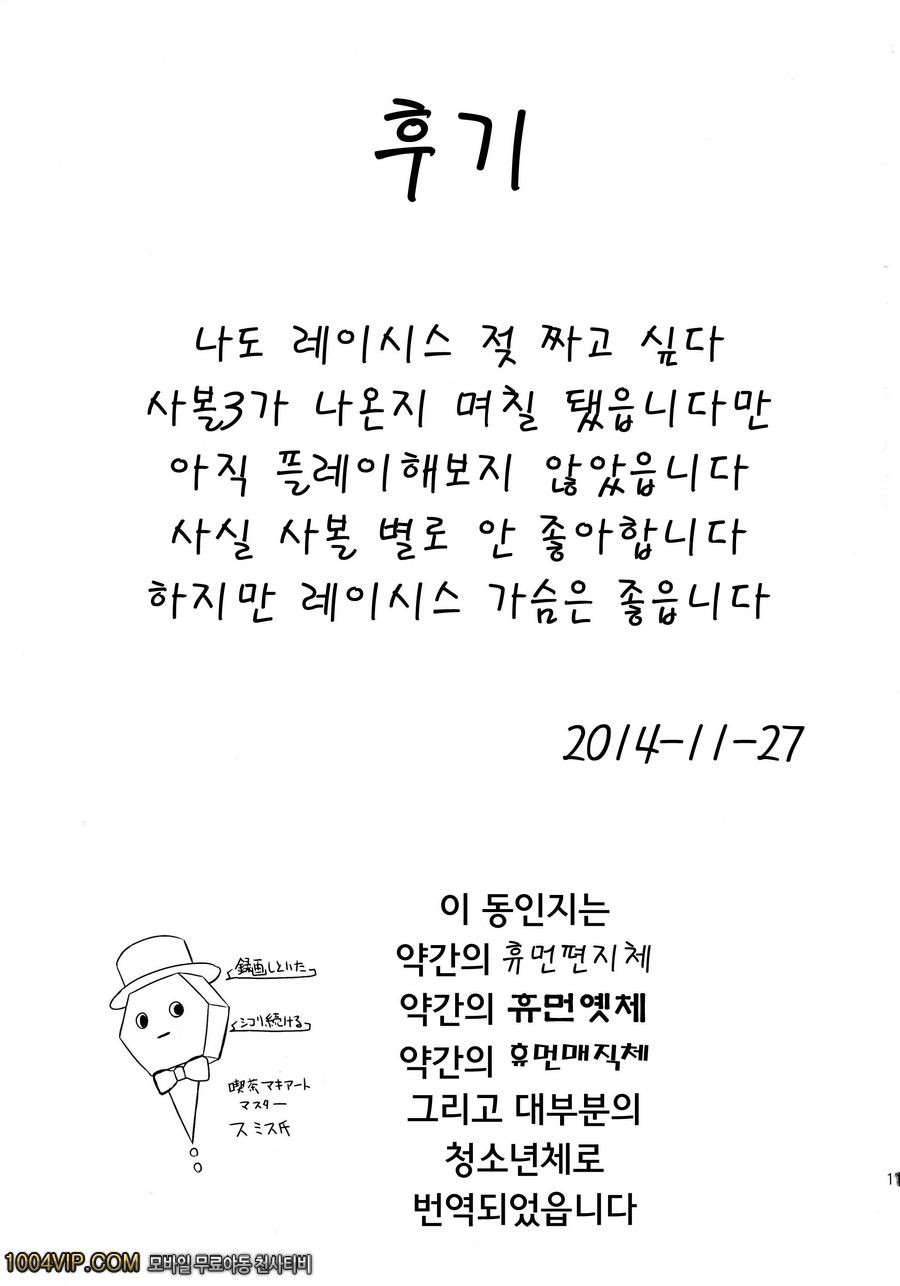 후기
나도 레이시스 젖 짜고 싶다
사볼3가 나온지 며칠 됐읍니다만
아직 플레이해보지 않았읍니다
사실 사볼 별로 안 좋아합니다
하지만 레이시스 가슴은 좋읍니다
2014-11-27
이 동인지는
약간의 휴먼편지체
약간의 휴먼옛체
약간의 휴먼매직체
그리고 대부분의
청소년체로
번역되었읍니다
録画しといた
シコリ続ける
喫茶マキアート
マスター
スミス氏
1004VIP.COM 모바일 무료야동 천사티비